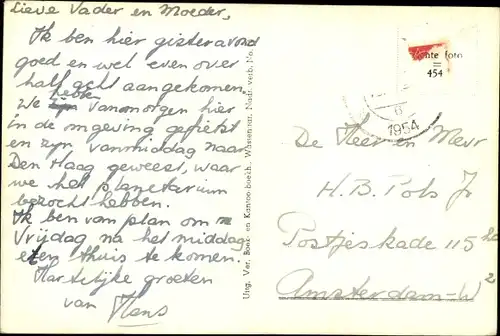 Lieve Vader en Moeder,
Ik ben hier gisteravond
goed en wel even over
half acht aangekomen.
We hebben vanmorgen hier
in de omgeving gefietst
en zijn vanmiddag naar
Den Haag geweest, waar
we het planetarium
bezocht hebben.
Ik ben van plan om
Vrijdag na het middag
eten thuis te komen.
Hartelijke groeten
van Hans
Uitg. Ver. Boek- en Kantoorboekh., Wassenaar. Nadr. verb. No.
echte foto
=
454
1954
De Heer en Mevr
H.B. Pols Jr
Postjeskade 115
Amsterdam-W
2